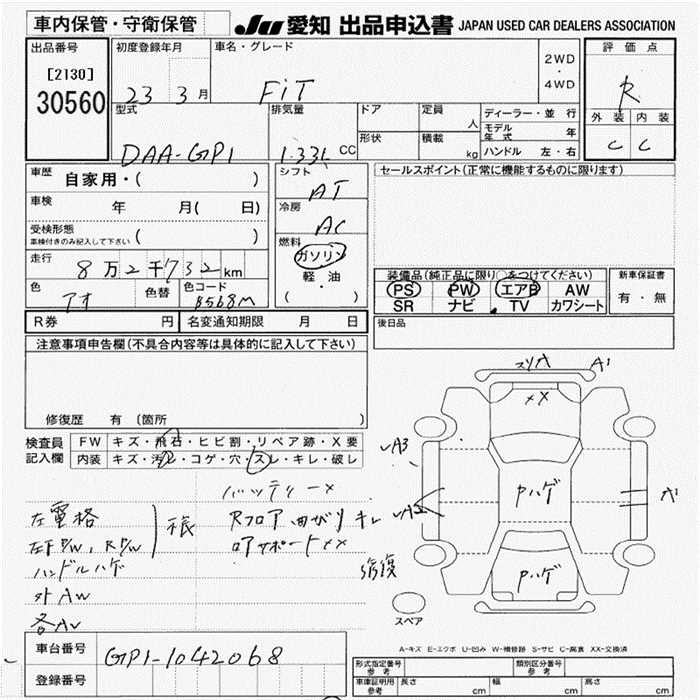 車内保管・守衛保管
JU 愛知 出品申込書 JAPAN USED CAR DEALERS ASSOCIATION
出品番号
[2130]
30560
初度登録年月
23 3月
車名・グレード
FiT
2WD
・
4WD
評価点
R
外装 内装
C C
型式
DAA-GP1
排気量
1.33L CC
ドア
形状
定員
人
積載
kg
ディーラー・並行
モデル年式 年
ハンドル 左・右
車歴 自家用・( )
車検 年 月( 日)
受検形態
車検付きのみ記入して下さい ( )
走行 8万2千732km
色 アオ
色替
色コード B568M
シフト
AT
冷房
AC
燃料
ガソリン
・
軽・油
( )
セールスポイント(正常に機能するものに限ります)
装備品(純正品に限り○をつけてください)
PS PW エアB AW
SR ナビ TV カワシート
新車保証書
有・無
R券 円
名変通知期限 月 日
後日品
注意事項申告欄(不具合内容等は具体的に記入して下さい)
修復歴 有 〔箇所 〕
検査員記入欄
FW キズ・飛石・ヒビ割・リペア跡・X要
内装 キズ・汚れ・コゲ・穴・スレ・キレ・破し
バッテリー×
左電格
左F P/W, R P/W
ハンドルハゲ
外AW
各AW
Rフロア曲がりキレ
ロアサポート××
修復
スリ
A1
××
A3
Pハゲ
A1
Pハゲ
スペア
A-キズ E-エクボ U-凹み W-補修跡 S-サビ C-腐食 XX-交換済
車台番号 GP1-1042068
登録番号
形式指定番号 参考
類別区分番号 参考
車庫証明用 参考
長さ cm
幅 cm
高さ cm